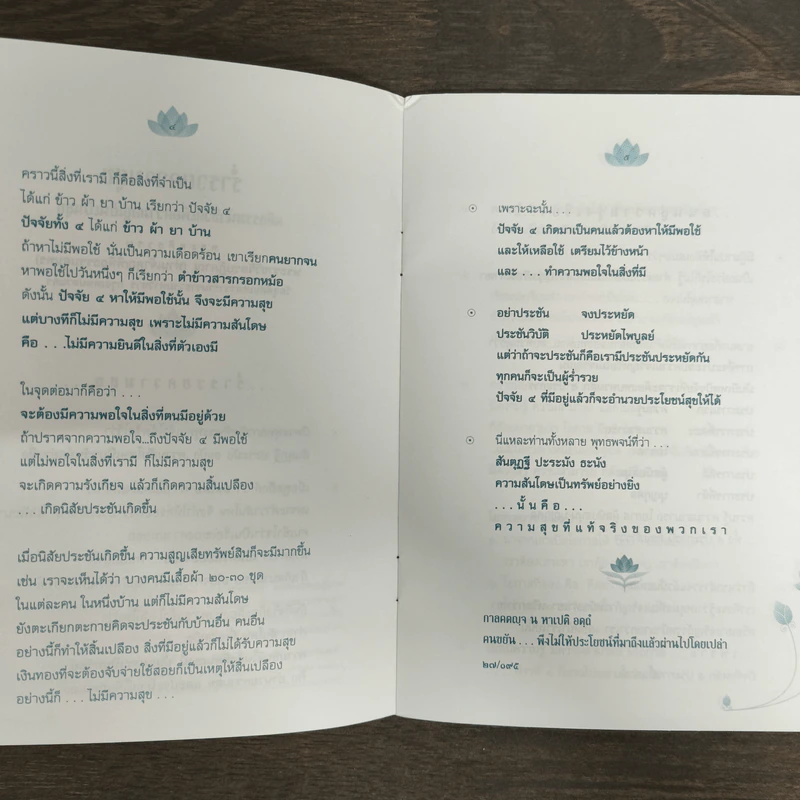 ๔
คราวนี้สิ่งที่เรามี ก็คือสิ่งที่จำเป็น
ได้แก่ ข้าว ผ้า ยา บ้าน เรียกว่า ปัจจัย ๔
ปัจจัยทั้ง ๔ ได้แก่ ข้าว ผ้า ยา บ้าน
ถ้าหาไม่มีพอใช้ นั่นเป็นความเดือดร้อน เขาเรียกคนยากจน
หาพอใช้ไปวันหนึ่งๆ ก็เรียกว่า ตำข้าวสารกรอกหม้อ
ดังนั้น ปัจจัย ๔ หาให้มีพอใช้นั้น จึงจะมีความสุข
แต่บางทีก็ไม่มีความสุข เพราะไม่มีความสันโดษ
คือ . . .ไม่มีความยินดีในสิ่งที่ตัวเองมี
ในจุดต่อมาก็คือว่า . . .
จะต้องมีความพอใจในสิ่งที่ตนมีอยู่ด้วย
ถ้าปราศจากความพอใจ...ถึงปัจจัย ๔ มีพอใช้
แต่ไม่พอใจในสิ่งที่เรามี ก็ไม่มีความสุข
จะเกิดความรังเกียจ แล้วก็เกิดความสิ้นเปลือง
. . . เกิดนิสัยประชันเกิดขึ้น
เมื่อนิสัยประชันเกิดขึ้น ความสูญเสียทรัพย์สินก็จะมีมากขึ้น
เช่น เราจะเห็นได้ว่า บางคนมีเสื้อผ้า ๒๐-๓๐ ชุด
ในแต่ละคน ในหนึ่งบ้าน แต่ก็ไม่มีความสันโดษ
ยังตะเกียกตะกายคิดจะประชันกับบ้านอื่น คนอื่น
อย่างนี้ก็ทำให้สิ้นเปลือง สิ่งที่มีอยู่แล้วก็ไม่ได้รับความสุข
เงินทองที่จะต้องจับจ่ายใช้สอยก็เป็นเหตุให้สิ้นเปลือง
อย่างนี้ก็ . . .ไม่มีความสุข . . .
๕
เพราะฉะนั้น . . .
ปัจจัย ๔ เกิดมาเป็นคนแล้วต้องหาให้มีพอใช้
และให้เหลือใช้ เตรียมไว้ข้างหน้า
และ . . . ทำความพอใจในสิ่งที่มี
อย่าประชัน จงประหยัด
ประชันวิบัติ ประหยัดไพบูลย์
แต่ว่าถ้าจะประชันก็คือเรามีประชันประหยัดกัน
ทุกคนก็จะเป็นผู้ร่ำรวย
ปัจจัย ๔ ที่มีอยู่แล้วก็จะอำนวยประโยชน์สุขให้ได้
นี่แหละท่านทั้งหลาย พุทธพจน์ที่ว่า . . .
สันตุฏฐี ปะระมัง ธะนัง
ความสันโดษเป็นทรัพย์อย่างยิ่ง
. . . นั้ น คื อ . . .
ค ว า ม สุ ข ที่ แ ท้ จ ริ ง ข อ ง พ ว ก เ ร า
กาลคตญฺจ น หาเปติ อตฺถํ
คนขยัน . . . พึงไม่ให้ประโยชน์ที่มาถึงแล้วผ่านไปโดยเปล่า
๒๗/๐๙๕